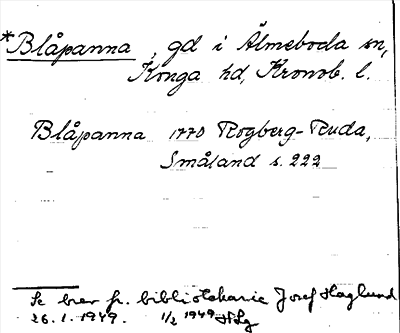 *Blåpanna, gd i Älmeboda sn,
Konga hd, Kronob. l.
Blåpanna 1770 Rogberg-Ruda,
Småland s. 222
Se brev fr. bibliotekarie Josef Haglund
26.1.1949. 1/2 1949